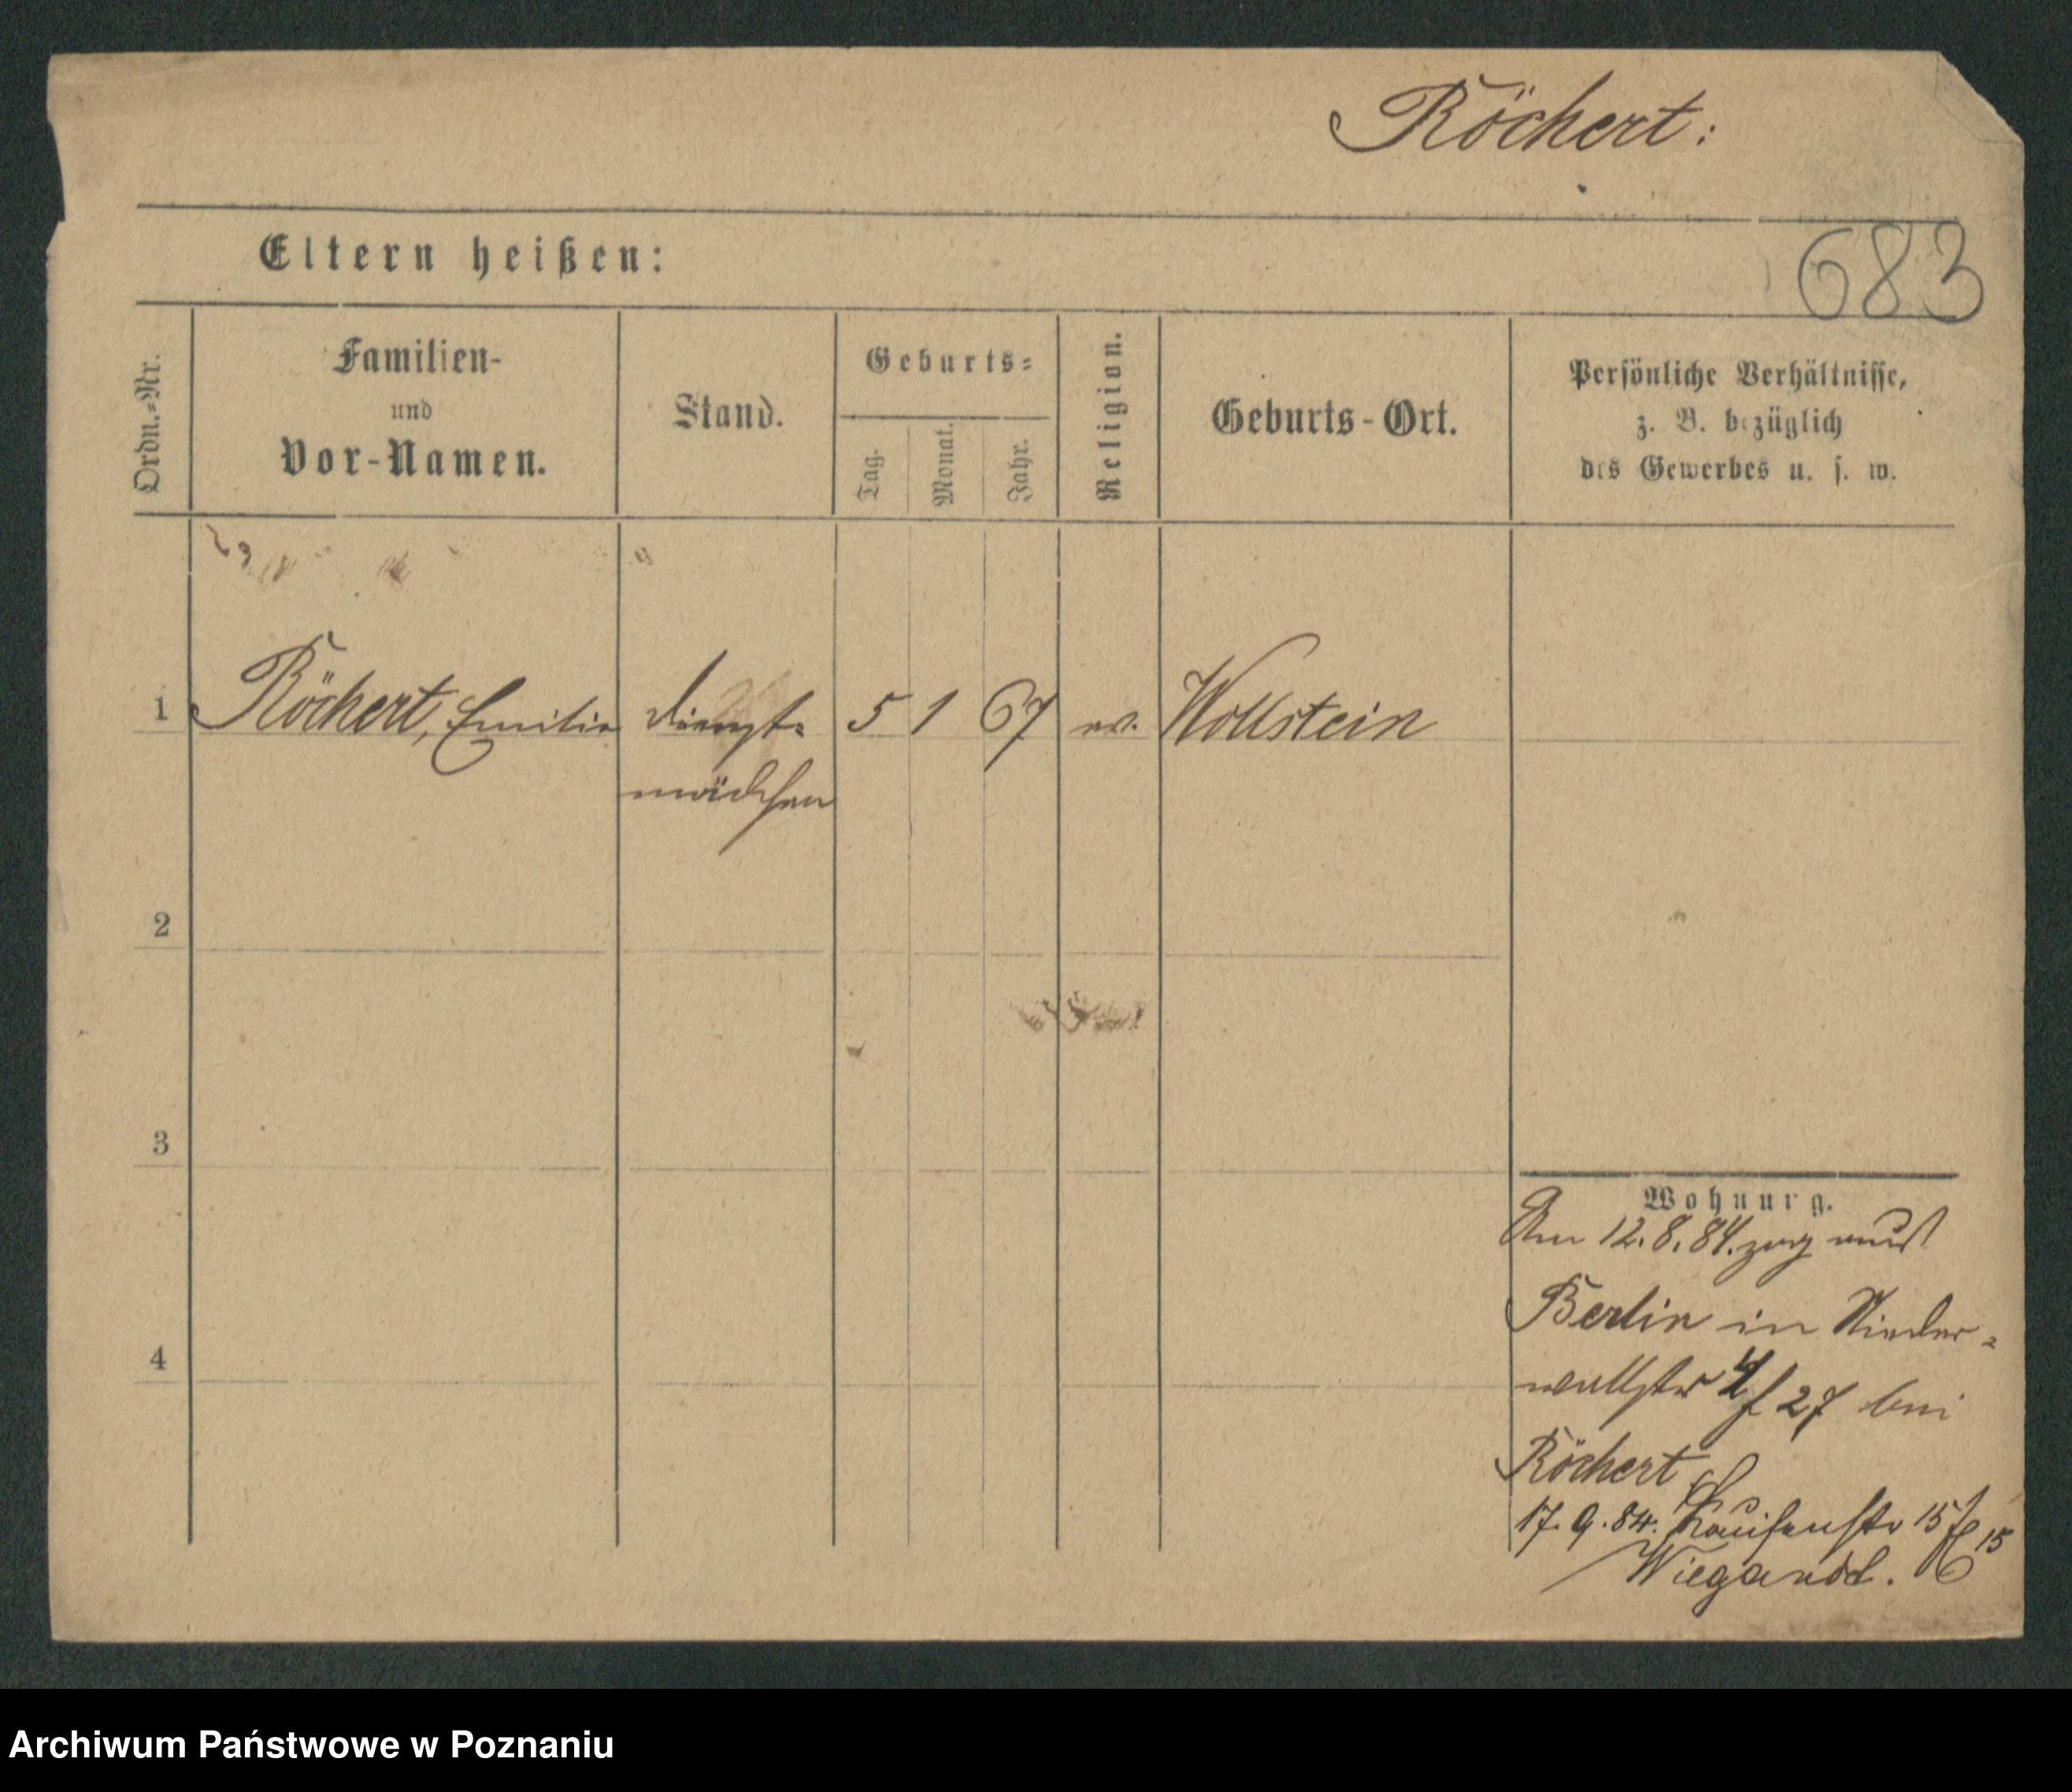 Röchert:
Eltern heißen:
683
Ordn.-Nr.
Familien-
und
Vor-Namen.
Stand.
Geburts-
Tag.
Monat.
Jahr.
Religion.
Geburts-Ort.
Persönliche Verhältnisse,
z. B. bezüglich
des Gewerbes u. s. w.
1 Röchert, Emilie Dienst- 5 1 67 ev. Wollstein
mädchen
2
3
4
Wohnung.
Am 12.8.84. zog aus
Berlin in Nieder-
wallstr 27 bei
Röchert
17.9.84. Louisenstr 15 15
Wiegandt.
Archiwum Państwowe w Poznaniu